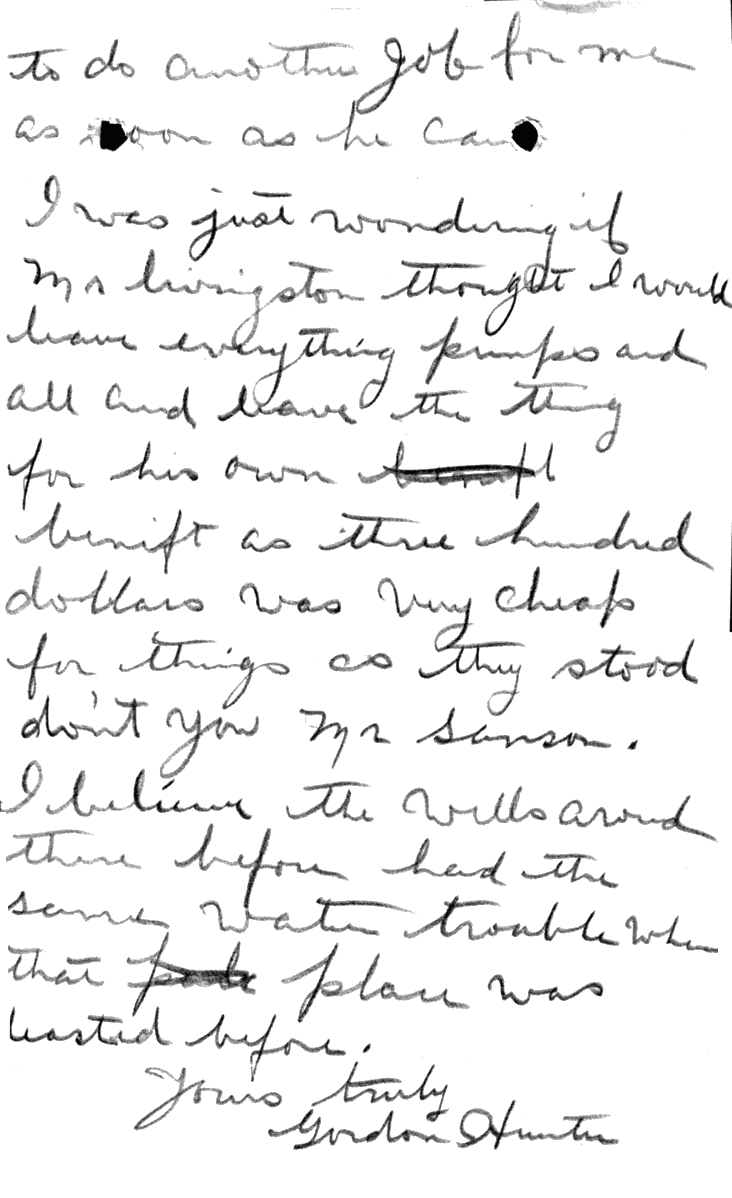 to do another Job for me
as soon as he can
I was just wondering if
Mr Livingston thought I would
leave everything pumps and
all and leave the thing
for his own
benift as three hundred
dollars was very cheap
for things as they stood
don't you Mr Sanson.
I believe the wells around
there before had the
same water trouble when
that place was
leasted before.
Yours truly
Gordon Hunter